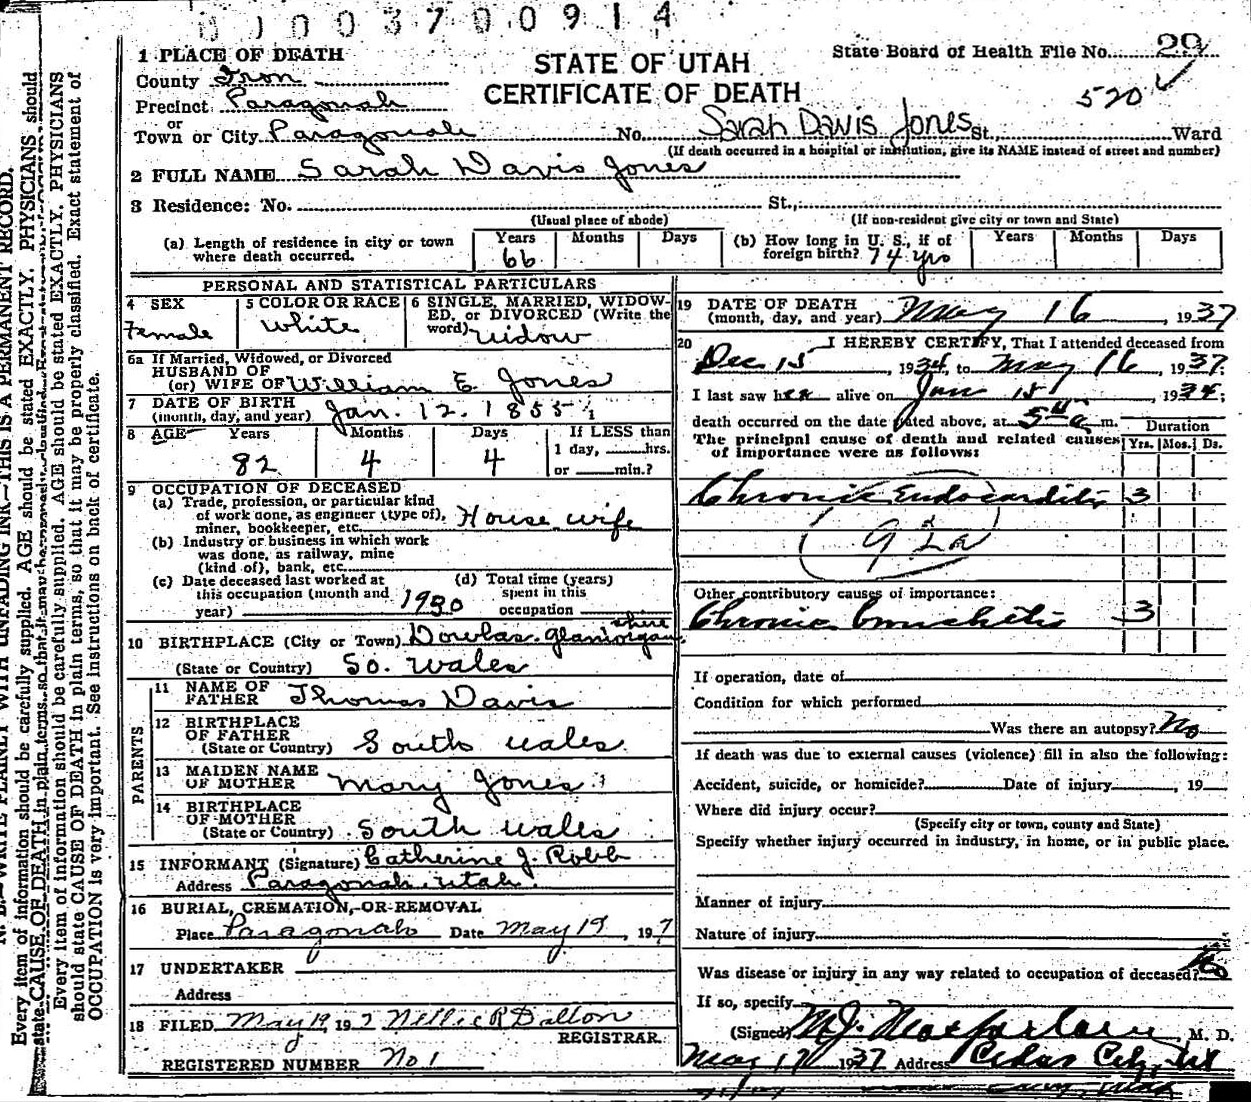 0003700914
STATE OF UTAH
CERTIFICATE OF DEATH
State Board of Health File No. 29
520
1 PLACE OF DEATH
County Iron
Precinct Paragonah
or
Town or City Paragonah No. Sarah Davis Jones St., Ward
(If death occurred in a hospital or institution, give its NAME instead of street and number)
2 FULL NAME Sarah Davis Jones
3 Residence: No. St.,
(Usual place of abode) (If non-resident give city or town and State)
(a) Length of residence in city or town where death occurred. Years 66 Months Days
(b) How long in U. S., if of foreign birth? 74 yrs Years Months Days
PERSONAL AND STATISTICAL PARTICULARS
4 SEX Female
5 COLOR OR RACE White
6 SINGLE, MARRIED, WIDOWED, or DIVORCED (Write the word) Widow
6a If Married, Widowed, or Divorced
HUSBAND OF
(or) WIFE OF William E. Jones
7 DATE OF BIRTH
(month, day, and year) Jan. 12. 1855
8 AGE Years 82 Months 4 Days 4 If LESS than 1 day, hrs. or min.?
9 OCCUPATION OF DECEASED
(a) Trade, profession, or particular kind of work done, as engineer (type of), miner, bookkeeper, etc. House wife
(b) Industry or business in which work was done, as railway, mine (kind of), bank, etc.
(c) Date deceased last worked at this occupation (month and year) 1930
(d) Total time (years) spent in this occupation
10 BIRTHPLACE (City or Town) Dowlas. Glamorganshire
(State or Country) So. Wales
PARENTS
11 NAME OF FATHER Thomas Davis
12 BIRTHPLACE OF FATHER
(State or Country) South Wales
13 MAIDEN NAME OF MOTHER Mary Jones
14 BIRTHPLACE OF MOTHER
(State or Country) South Wales
15 INFORMANT (Signature) Catherine J. Robb
Address Paragonah, Utah.
16 BURIAL, CREMATION, OR REMOVAL
Place Paragonah Date May 19, 1937
17 UNDERTAKER
Address
18 FILED May 19 1937 Nellie R Dalton
REGISTRAR.
REGISTERED NUMBER No 1
19 DATE OF DEATH
(month, day, and year) May 16, 1937
20 I HEREBY CERTIFY, That I attended deceased from
Dec 15, 1934, to May 16, 1937;
I last saw her alive on Jan 15, 1934;
death occurred on the date stated above, at 5 a. m.
Duration
The principal cause of death and related causes of importance were as follows: Yrs. Mos. Ds.
Chronic Endocarditis 3
92a
Other contributory causes of importance:
Chronic Bronchitis 3
If operation, date of
Condition for which performed
Was there an autopsy? No
If death was due to external causes (violence) fill in also the following:
Accident, suicide, or homicide? Date of injury, 19
Where did injury occur?
(Specify city or town, county and State)
Specify whether injury occurred in industry, in home, or in public place.
Manner of injury
Nature of injury
Was disease or injury in any way related to occupation of deceased? No
If so, specify
(Signed) M.J. Macfarlane M. D.
May 17 1937 Address Cedar City, Ut
N. B.—WRITE PLAINLY WITH UNFADING INK—THIS IS A PERMANENT RECORD.
Every item of information should be carefully supplied. AGE should be stated EXACTLY. PHYSICIANS should
state CAUSE OF DEATH in plain terms, so that it may be properly classified.
Every item of information should be carefully supplied. AGE should be stated EXACTLY. PHYSICIANS
should state CAUSE OF DEATH in plain terms, so that it may be properly classified. Exact statement of
OCCUPATION is very important. See instructions on back of certificate.